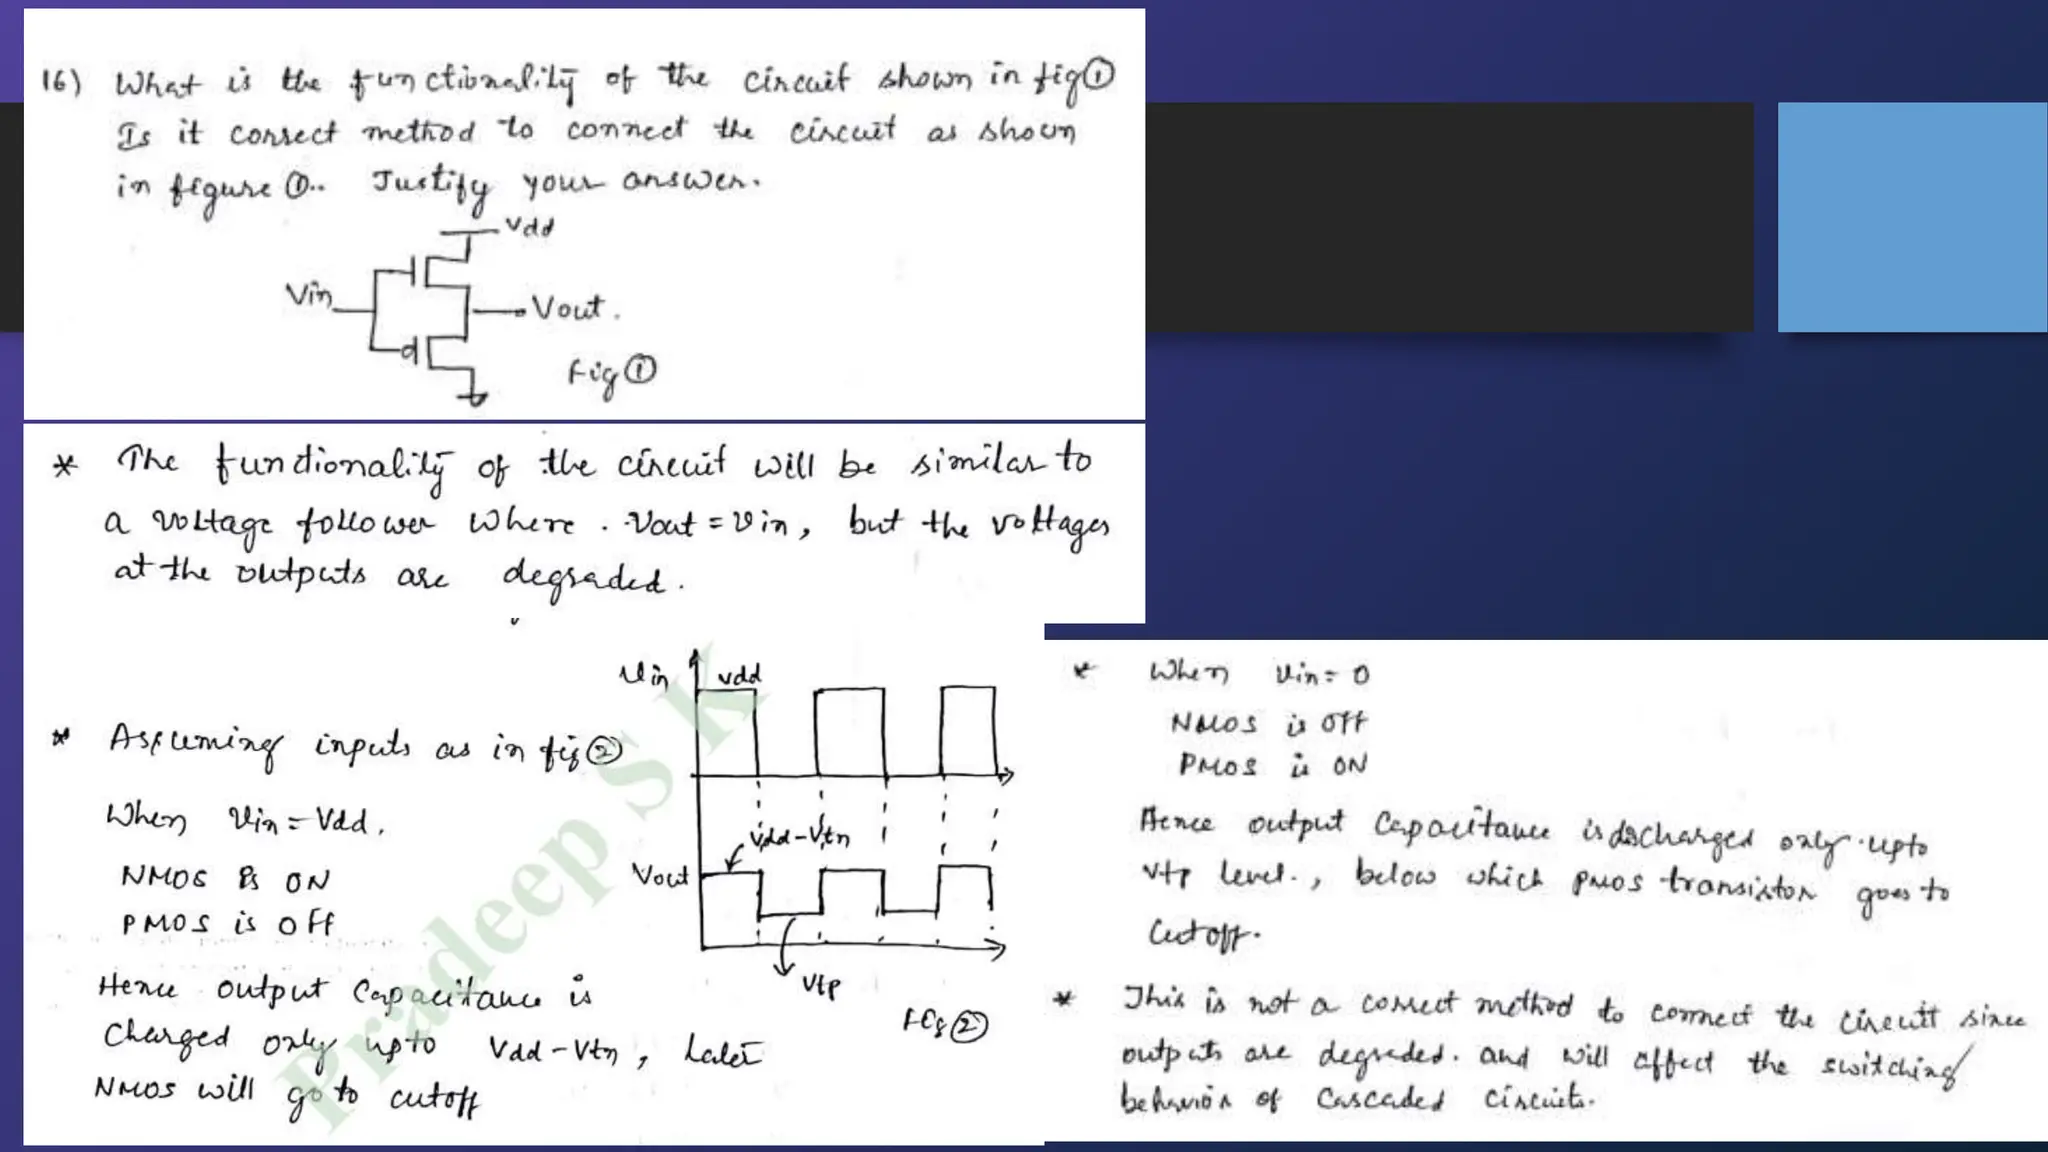 16) What is the functionality of the circuit shown in fig ①
Is it correct method to connect the circuit as shown
in figure ①.. Justify your answer.
Vdd
Vin
Vout.
Fig ①
* The functionality of the circuit will be similar to
a voltage follower where . Vout = Vin, but the voltages
at the outputs are degraded.
Vin
Vdd
* Assuming inputs as in fig ②
When Vin = Vdd,
Vdd-Vtn
NMOS is ON
Vout
PMOS is OFF
Vtp
Fig ②
Hence output Capacitance is
Charged only upto Vdd - Vtn, Later
NMOS will go to cutoff
Pradeep S K
* When Vin = 0
NMOS is OFF
PMOS is ON
Hence output Capacitance is discharged only upto
Vtp level., below which PMOS transistor goes to
Cutoff.
* This is not a correct method to connect the circuit since
outputs are degraded. and will affect the switching
behavior of Cascaded circuits.